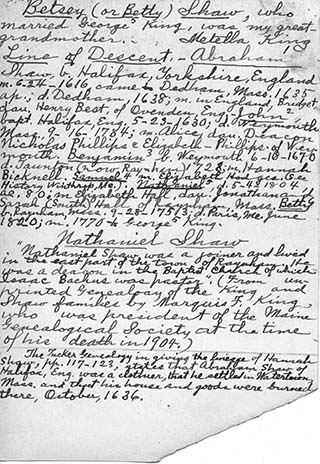 Betsey (or Betty) Shaw, who
married George⁵ King, was my great-
grandmother.: Metella King
Line of Descent. - Abraham
Shaw, b. Halifax, Yorkshire, England
m. 6-24-1616 came to Dedham, Mass. 1635
ap.; d. Dedham, 1638; m. in England, Bridget,
dau. Henry Best, of Ovenden, Eng. John²
bapt. Halifax, Eng. 5-23-1630, d. Weymouth
Mass. 9-16-1704; m. Alice, dau. Deacon
Nicholas Phillips & Elizabeth - Phillips of Wey-
mouth. Benjamin³ b. Weymouth 6-16-1670
Taunton (now Raynham) 1723; m. Hannah
Bicknell. Samuel⁴ m. Elizabeth Hall (see Gen.
History Winthrop, Me.). Nathaniel⁵, d. 5-4-1804,
ae. 80; m. Elizabeth Hall, dau. Jonathan and
Sarah (Smith) Hall of Taunton, Mass. Betty⁶
b. Raynham, Mass. 9-28-1751/3; d. Paris, Me. June
1820; m. 1770-1 George⁵ King.
Nathaniel Shaw
"Nathaniel Shaw was a farmer and lived
in the east part of the town of Raynham. He
was a deacon in the Baptist Church of which
Isaac Backus was pastor." (From un-
printed Genealogy of the King and
Shaw families by Marquis F. King,
who was president of the Maine
Genealogical Society at the time
of his death in 1904.)
The Tucker Genealogy in giving the lineage of Hannah
Shaw, pp. 117-123, states that Abraham Shaw of
Halifax, Eng. was a clothier, that he settled in Watertown,
Mass. and that his house and goods were burned
there, October, 1636.